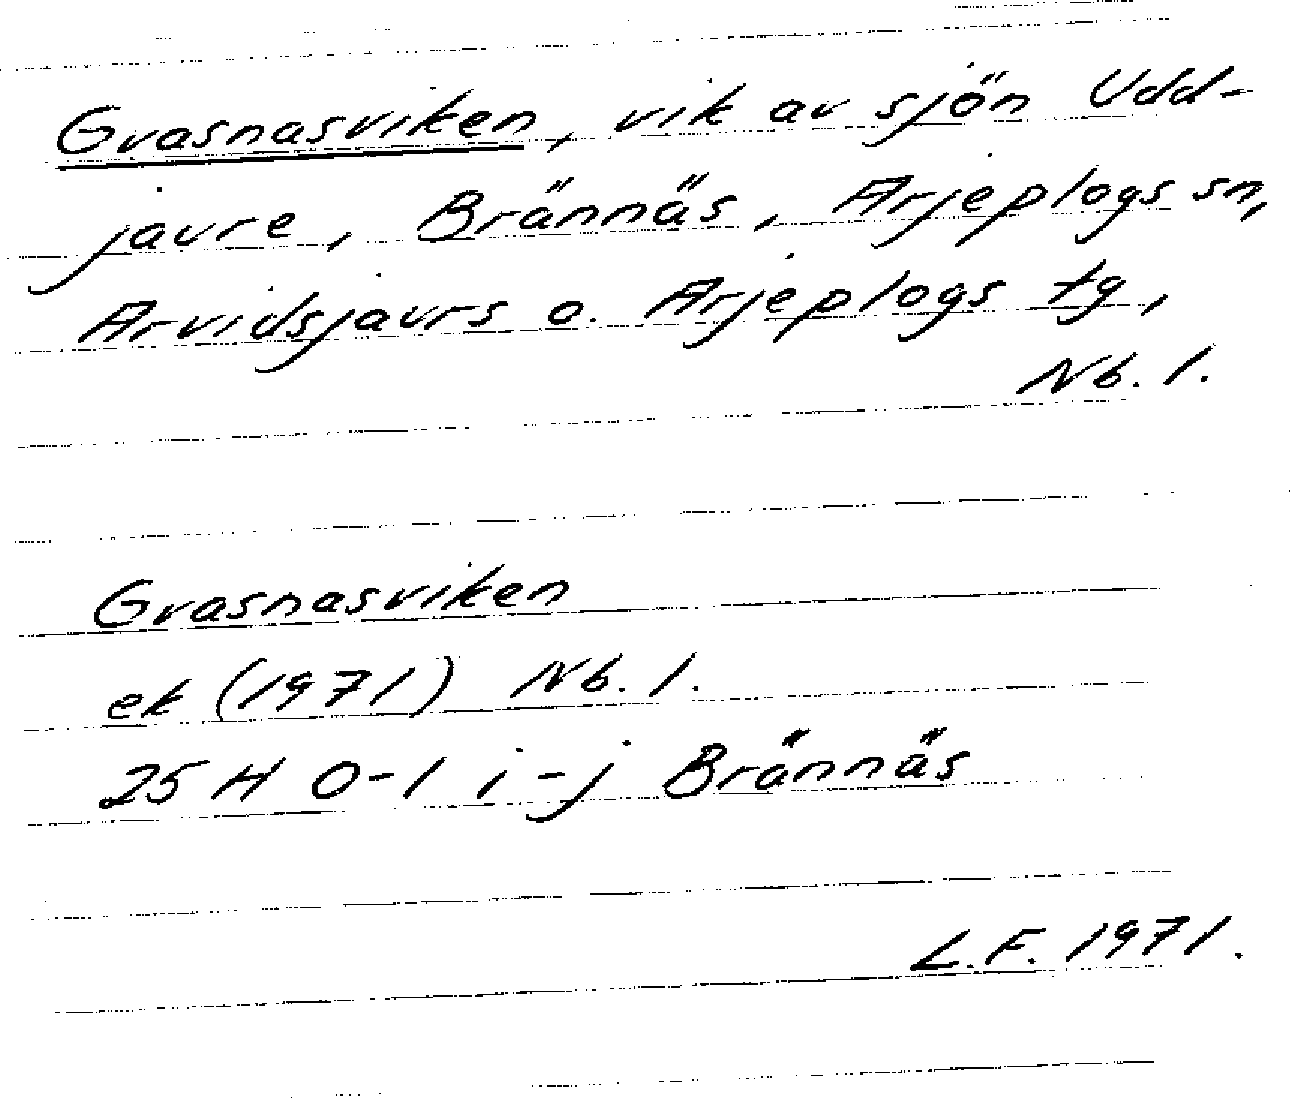 Gvasnasviken, vik av sjön Udd-
javre, Brännäs, Arjeplogs sn,
Arvidsjaurs o. Arjeplogs tg,
Nb. l.
Gvasnasviken
ek (1971) Nb. l.
25 H 0-1 i-j Brännäs
L.F. 1971.